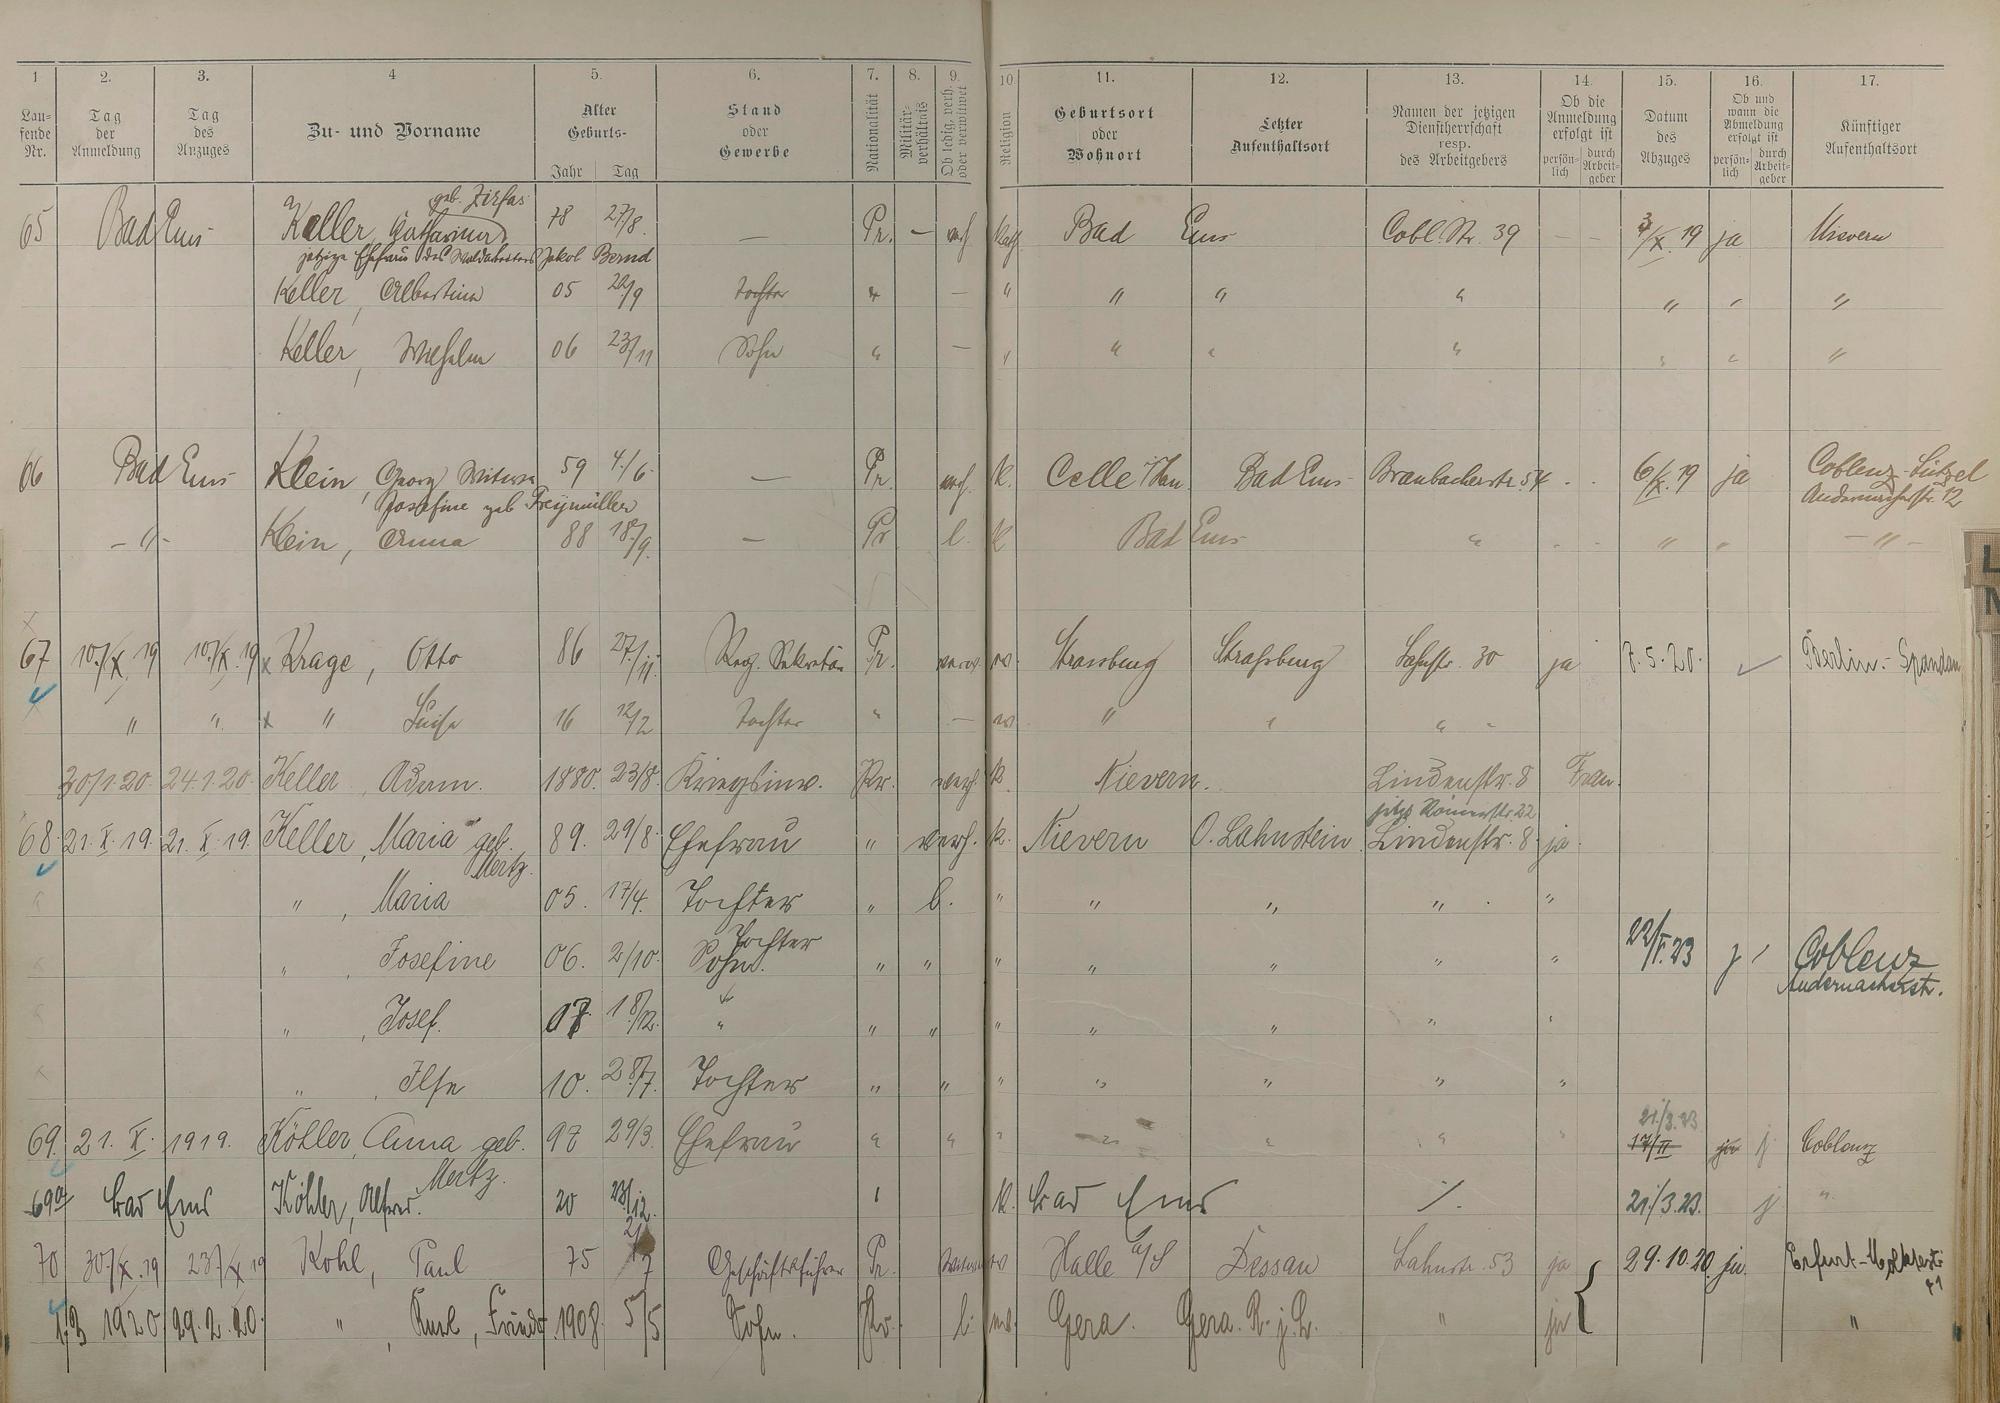 1 2. 3. 4 5. 6. 7. 8. 9. 10 11. 12. 13. 14. 15. 16. 17.
Lau-
fende
Nr.
Tag
der
Anmeldung
Tag
des
Anzuges
Zu- und Vorname
Alter
Geburts-
Jahr Tag
Stand
oder
Gewerbe
Nationalität
Militär-
verhältnis
Ob ledig, verh.
oder verwitwet
Religion
Geburtsort
oder
Wohnort
Letzter
Aufenthaltsort
Namen der jetzigen
Dienstherrschaft
resp.
des Arbeitgebers
Ob die
Anmeldung
erfolgt ist
persön-
lich
durch
Arbeit-
geber
Datum
des
Abzuges
Ob und
wann die
Abmeldung
erfolgt ist
persön-
lich
durch
Arbeit-
geber
Künftiger
Aufenthaltsort
geb. Zirfas
65 Bad Ems Keller, Catharina 78 27/8. — Pr. — verh kath Bad Ems Cobl. Str. 39 — — 3/X. 19 ja Nievern
jetzige Ehefrau des Jakob Bernd
Keller, Albertine 05 22/9 Tochter " — " " " " " " "
Keller, Wilhelm 06 23/11 Sohn " — " " " " " " "
66 Bad Ems Klein, Georg Witwe 59 4./6. — Pr. k. Celle Bad Ems Braubacherstr. 54 - - 6/X. 19 ja Coblenz-Lützel
Josefine geb Freymüller Andernacherstr. 12
- " - Klein, Anna 88 18/9. — Pr l. k Bad Ems " - - " " - " -
67 10./X. 19 10./X. 19 x Krage, Otto 86 27./11. Reg. Sekretär Pr. verw. ev. Strassburg Straßburg Lahnstr. 30 ja 7.5.20. ✓ Berlin.-Spandau
" " x " Luise 16 12/2 Tochter " — ev " " " "
30/1.20. 24.1.20. Keller, Adam. 1880. 23/8. Kriegsinv. Pr. verh. k. Nievern. Lindenstr. 8 Frau.
jetzt Römerstr. 22
68. 21. X. 19. 21. X. 19. Keller, Maria geb. 89. 29/8. Ehefrau " verh. k. Nievern O. Lahnstein Lindenstr. 8. ja.
Mertz.
", Maria 05. 17/4. Tochter " l. " " " " "
Tochter
", Josefine 06. 2/10. Sohn. " " " " " " " 22/I. 23 j Coblenz
Andernacherstr.
", Josef. 07 18/12. " " " " " " " "
", Ilse 10. 28./7. Tochter " " " " " " "
21/3.23
69. 21. X. 1919. Köhler, Anna geb. 97 29/3. Ehefrau " " " " " " " 17/II ja j Coblenz
Mertz.
69a Bad Ems Köhler, Alfred. 20 23/12. k. Bad Ems ./. 21/3.23. j "
70 30./X. 19 23./X 19 Kohl, Paul 75 21/7 Geschäftsführer Pr. Witwer ev Halle a/S Dessau Lahnstr. 53 ja 29.10.20. ja. Erfurt-
1.3 1920 29.2.20. ", Karl, Friedr. 1908. 5/5 Sohn. Pr. l. ev. Gera. Gera. R. j. L. " ja "